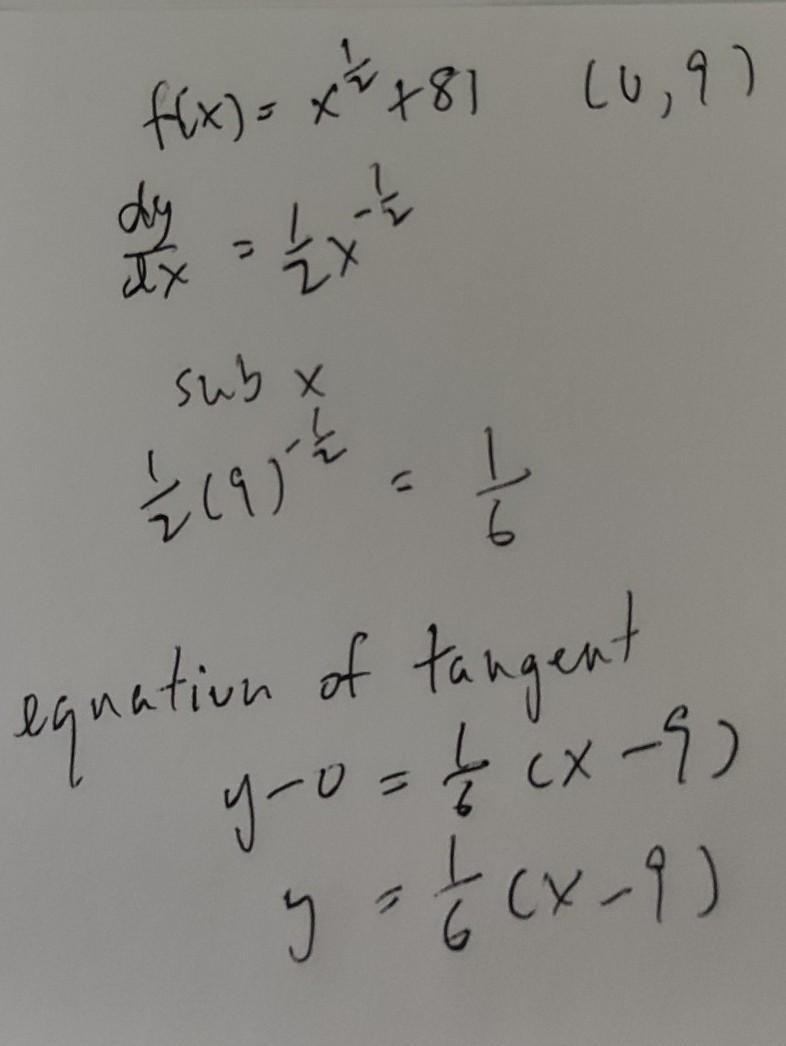 f(x) = x^{1/2} + 81 (0, 9)
dy/dx = 1/2 x^{-1/2}
sub x
1/2 (9)^{-1/2} = 1/6
equation of tangent
y - 0 = 1/6 (x - 9)
y = 1/6 (x - 9)